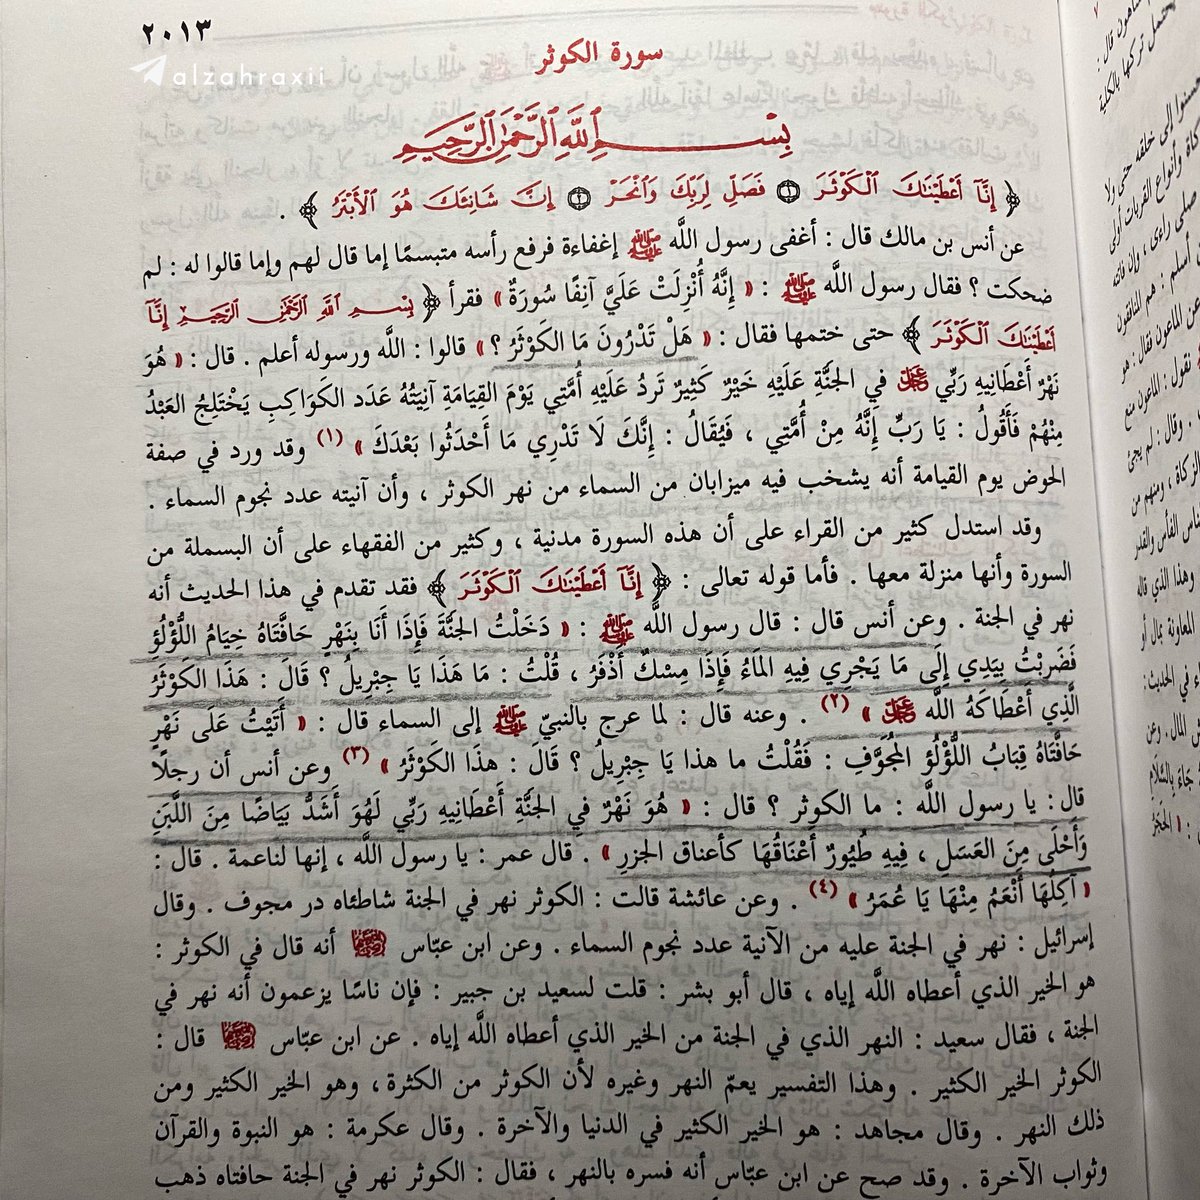 ٢٠١٣
alzahraxii
سورة الكوثر
بِسْمِ ٱللَّهِ ٱلرَّحْمَٰنِ ٱلرَّحِيمِ
﴿ إِنَّآ أَعْطَيْنَٰكَ ٱلْكَوْثَرَ ۝١ فَصَلِّ لِرَبِّكَ وَٱنْحَرْ ۝٢ إِنَّ شَانِئَكَ هُوَ ٱلْأَبْتَرُ ﴾ .
عن أنس بن مالك قال : أغفى رسول اللَّه ﷺ إغفاءة فرفع رأسه متبسمًا إما قال لهم وإما قالوا له : لم
ضحكت ؟ فقال رسول اللَّه ﷺ : « إِنَّهُ أُنْزِلَتْ عَلَيَّ آنِفًا سُورَةٌ » فقرأ ﴿ بِسْمِ ٱللَّهِ ٱلرَّحْمَٰنِ ٱلرَّحِيمِ إِنَّآ
أَعْطَيْنَٰكَ ٱلْكَوْثَرَ ﴾ حتى ختمها فقال : « هَلْ تَدْرُونَ مَا الكَوْثَرُ ؟ » قالوا : اللَّه ورسوله أعلم . قال : « هُوَ
نَهْرٌ أَعْطَانِيهِ رَبِّي ﷻ فِي الجَنَّةِ عَلَيْهِ خَيْرٌ كَثِيرٌ تَرِدُ عَلَيْهِ أُمَّتِي يَوْمَ القِيَامَةِ آنِيَتُهُ عَدَد الكَوَاكِبِ يَخْتَلِجُ العَبْدُ
مِنْهُمْ فَأَقُولُ : يَا رَبِّ إِنَّهُ مِنْ أُمَّتِي ، فَيُقَالُ : إِنَّكَ لَا تَدْرِي مَا أَحْدَثُوا بَعْدَكَ » (١) وقد ورد في صفة
الحوض يوم القيامة أنه يشخب فيه ميزابان من السماء من نهر الكوثر ، وأن آنيته عدد نجوم السماء .
وقد استدل كثير من القراء على أن هذه السورة مدنية ، وكثير من الفقهاء على أن البسملة من
السورة وأنها منزلة معها . فأما قوله تعالى : ﴿ إِنَّآ أَعْطَيْنَٰكَ ٱلْكَوْثَرَ ﴾ فقد تقدم في هذا الحديث أنه
نهر في الجنة . وعن أنس قال : قال رسول اللَّه ﷺ : « دَخَلْتُ الجَنَّةَ فَإِذَا أَنَا بِنَهْرٍ حَافَّتَاهُ خِيَامُ اللُّؤْلُؤِ
فَضَرَبْتُ بِيَدِي إِلَى مَا يَجْرِي فِيهِ المَاءُ فَإِذَا مِسْكٌ أَذْفَرُ ، قُلْتُ : مَا هَذَا يَا جِبْرِيلُ ؟ قَالَ : هَذَا الكَوْثَرُ
الَّذِي أَعْطَاكَهُ اللَّه ﷻ » (٢) . وعنه قال : لما عرج بالنبيّ ﷺ إلى السماء قال : « أَتَيْتُ عَلَى نَهْرٍ
حَافَّتَاهُ قِبَابُ اللُّؤْلُؤِ المُجَوَّفِ : فَقُلْتُ ما هذا يَا جِبْرِيلُ ؟ قَالَ : هذَا الكَوْثَرُ » (٣) وعن أنس أن رجلًا
قال : يا رسول اللَّه : ما الكوثر ؟ قال : « هُوَ نَهْرٌ فِي الجَنَّةِ أَعْطَانِيهِ رَبِّي لَهُوَ أَشَدُّ بَيَاضًا مِنَ اللَّبَنِ
وَأَحْلَى مِنَ العَسَلِ ، فِيهِ طُيُورٌ أَعْنَاقُهَا كأعناق الجزرِ » . قال عمر : يا رسول اللَّه ، إنها لناعمة . قال :
« آكِلُهَا أَنْعَمُ مِنْهَا يَا عُمَرُ » (٤) . وعن عائشة قالت : الكوثر نهر في الجنة شاطئاه در مجوف . وقال
إسرائيل : نهر في الجنة عليه من الآنية عدد نجوم السماء . وعن ابن عبّاس أنه قال في الكوثر :
هو الخير الذي أعطاه اللَّه إياه ، قال أبو بشر : قلت لسعيد بن جبير : فإن ناسًا يزعمون أنه نهر في
الجنة ، فقال سعيد : النهر الذي في الجنة من الخير الذي أعطاه اللَّه إياه . عن ابن عبّاس قال :
الكوثر الخير الكثير . وهذا التفسير يعمّ النهر وغيره لأن الكوثر من الكثرة ، وهو الخير الكثير ومن
ذلك النهر . وقال مجاهد : هو الخير الكثير في الدنيا والآخرة . وقال عكرمة : هو النبوة والقرآن
وثواب الآخرة . وقد صح عن ابن عبّاس أنه فسره بالنهر ، فقال : الكوثر نهر في الجنة حافتاه ذهب